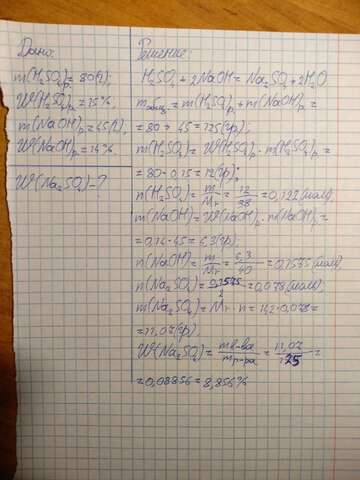 Дано:
m(H₂SO₄)р = 80(г),
W(H₂SO₄)р = 15%,
m(NaOH)р = 45(г),
W(NaOH)р = 14%.
W(Na₂SO₄) - ?
Решение:
H₂SO₄ + 2NaOH = Na₂SO₄ + 2H₂O
mобщ = m(H₂SO₄)р + m(NaOH)р =
= 80 + 45 = 125(гр);
m(H₂SO₄) = W(H₂SO₄)р · m(H₂SO₄)р =
= 80 · 0.15 = 12(гр);
n(H₂SO₄) = m/Mr = 12/98 = 0,122(моль)
m(NaOH) = W(NaOH)р · m(NaOH)р =
= 0,14 · 45 = 6,3(гр);
n(NaOH) = m/Mr = 6,3/40 = 0,1575(моль);
n(Na₂SO₄) = 0,1575/2 = 0,078(моль);
m(Na₂SO₄) = Mr · n = 142 · 0,078 =
= 11,07(гр).
W(Na₂SO₄) = mв-ва/mр-ра = 11,07/125 =
= 0,08856 = 8,856%